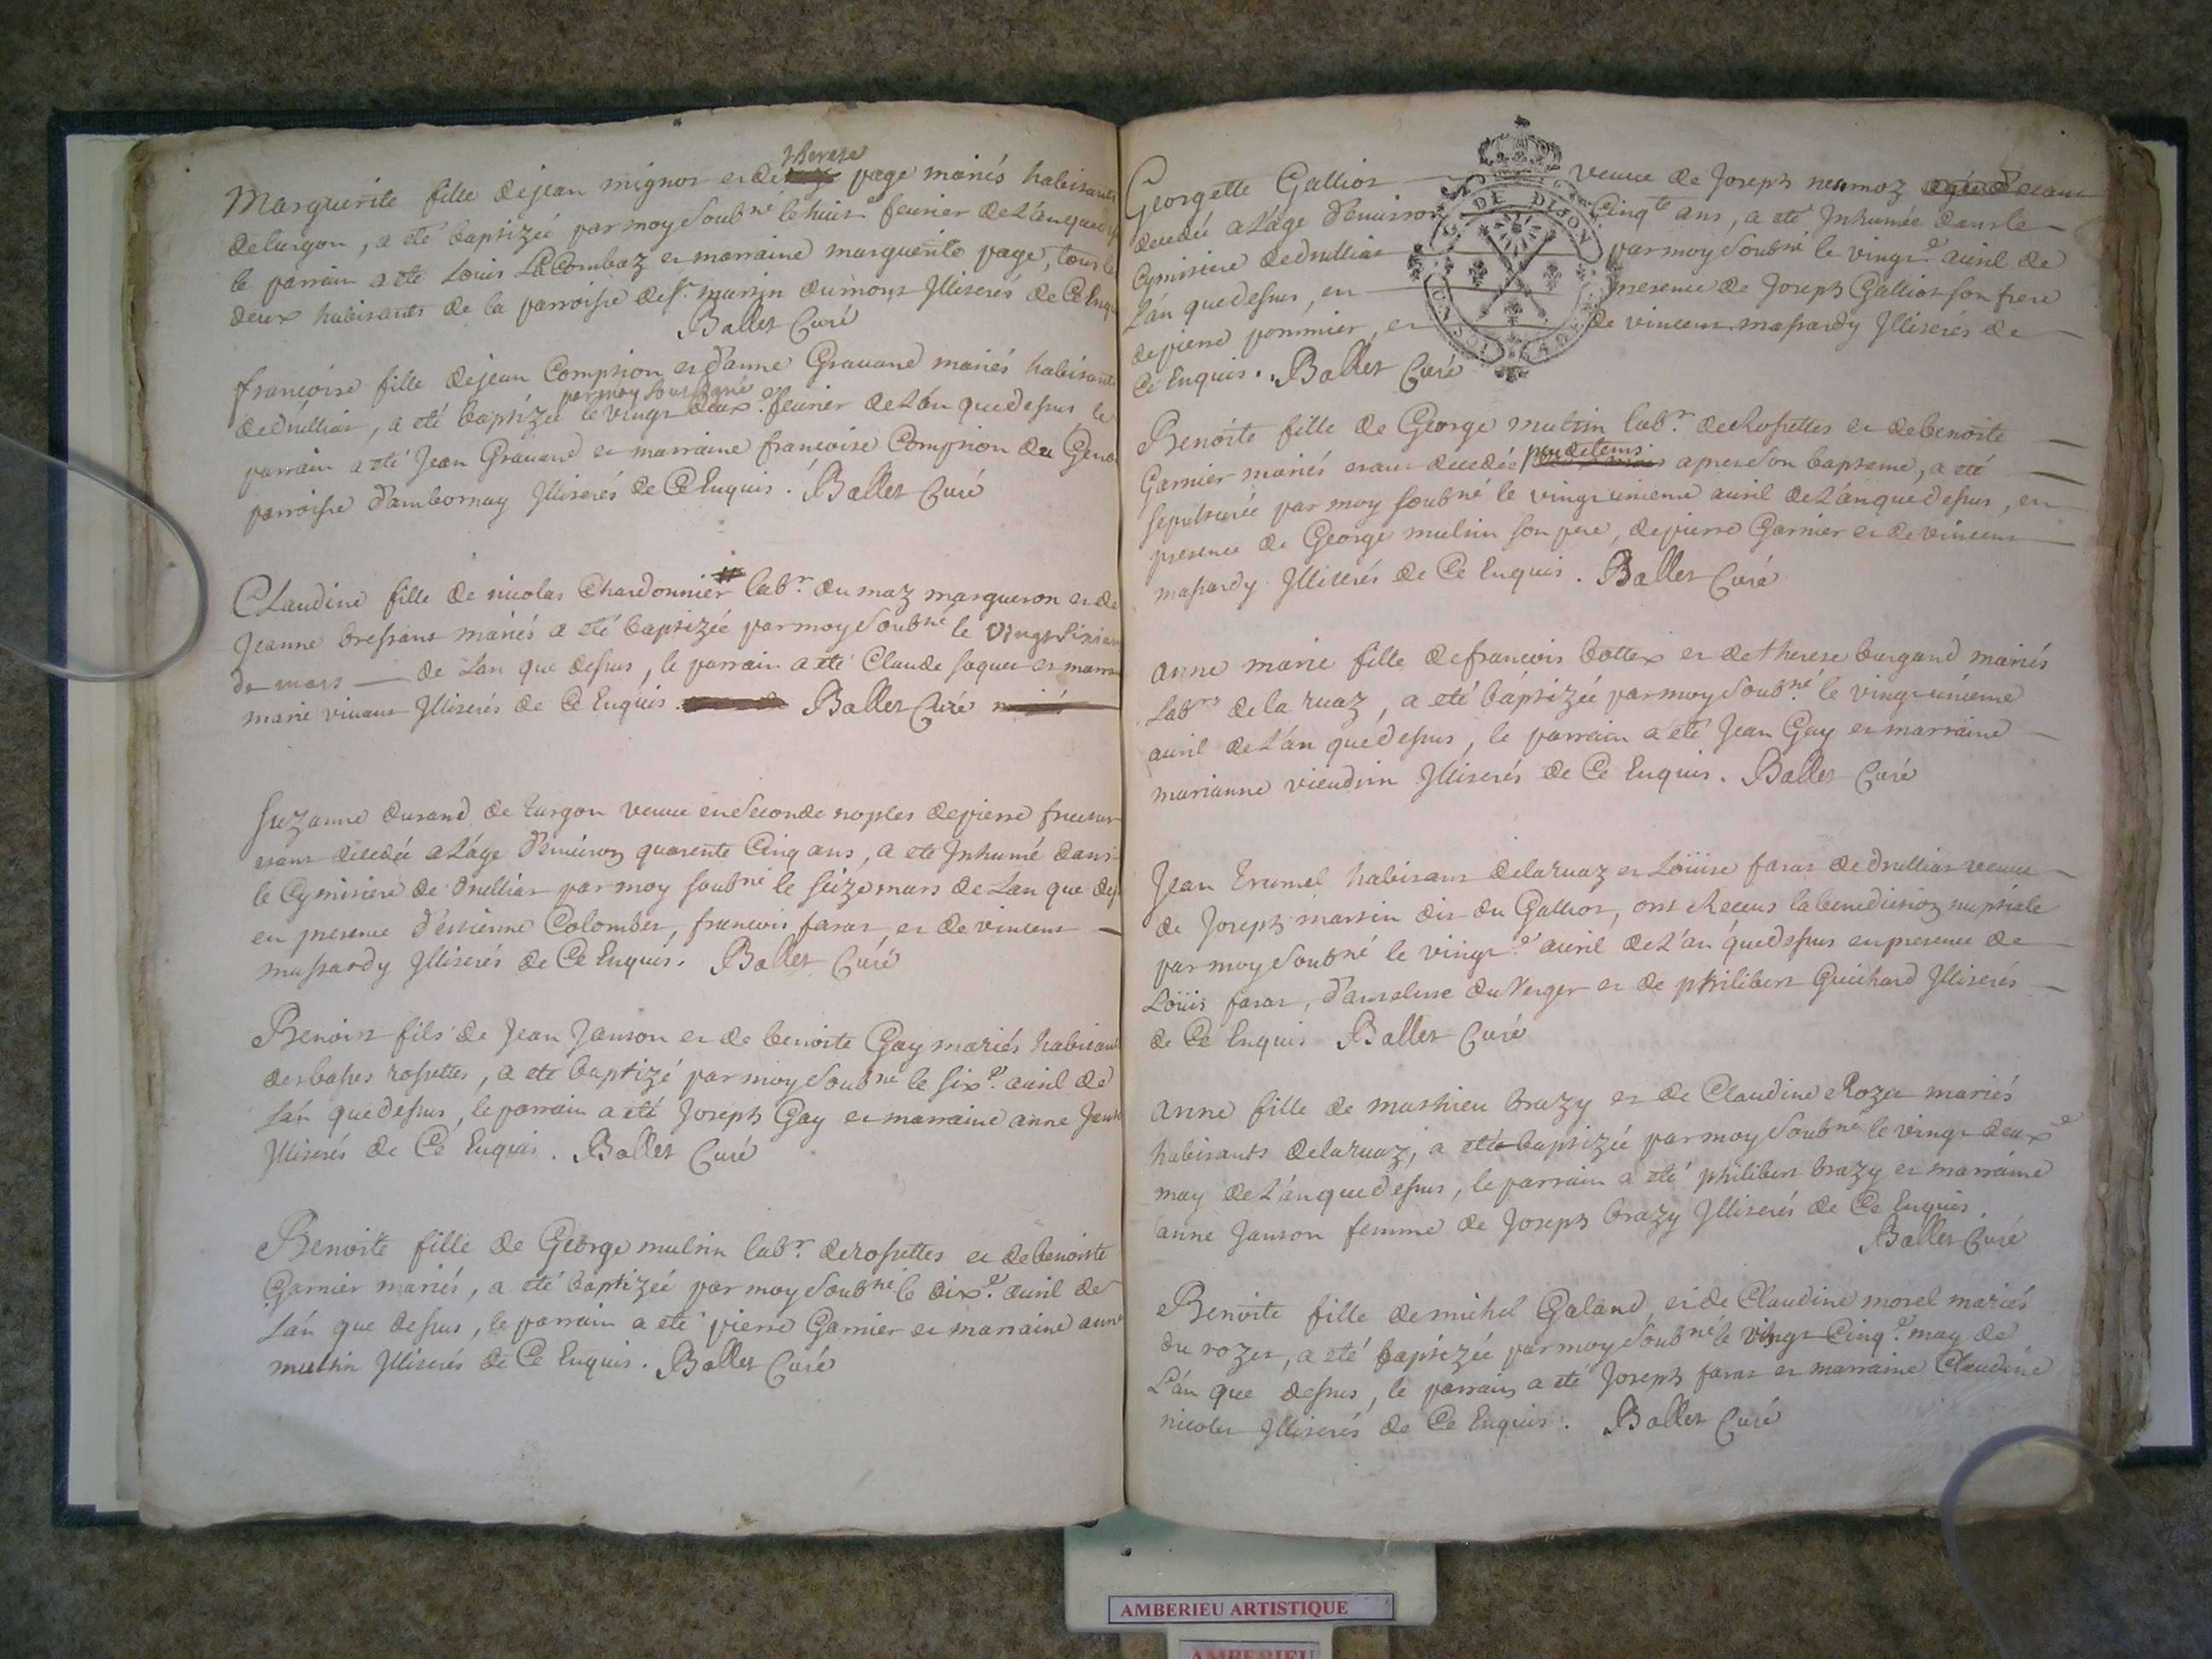 Marguerite fille de jean mignot et de therese page mariés habitants
de turgon, a eté baptizée par moy soubné le huit.e feurier de L'an que
le parrain a eté Louis LaCombaz et marraine marguerite page, tous le
deux habitants de la parroisse de St. martin dumont Illiterés de Ce Enq
Ballet Curé
françoise fille de jean Compsion et d'anne Grauand mariés habitants
par moy soussigné
de druilliat, a eté baptizée le vingt deux.e feurier de L'an que dessus le
parrain a eté Jean Grauand et marraine francoise Compsion de
parroisse d'ambornay Illiterés de Ce Enquis. Ballet Curé
Claudine fille de nicolas Chardonnier labr. du maz margueron et de
Jeanne bressant mariés a eté baptizée par moy soubné le vingt sixiem
de mars de Lan que dessus, le parrain a eté Claude et marra
marie viuant Illiterés de Ce Enquis. Ballet Curé
Suzanne durand de turgon veuue en seconde noples de pierre
etant decedée a L'áge d'enuiron quarente Cinq ans, a ete Inhumé dans
le Cymitiere de druilliat par moy soubné le seize mars de Lan que des
en presence d'estienne Colombet, francois farat, et de vincent
massardy Illiterés de Ce Enquis. Ballet Curé
Benoist fils de Jean Janton et de benoite Gay mariés habitant
des basses rossettes, a ete baptizé par moy soubné le six.e auril de
L'án que dessus, le parrain a eté Joseph Gay et marraine anne Jant
Illiterés de Ce Enquis. Ballet Curé
Benoite fille de George mutin labr. de rossettes et de benoiste
Garnier mariés, a eté baptizée par moy soubné le dix.e auril de
L'án que dessus, le parrain a eté pierre Garnier et marraine anne
mutin Illiterés de Ce Enquis. Ballet Curé
Georgette Galliot veuue de Joseph
decedée a L'áge d'enuiron Cinqte ans, a eté Inhumée dans le
Cymitiere de druilliat par moy soubné le vingt.e auril de
L'án que dessus, en presence de Joseph Galliot son frere
de pierre pommier, et de vincent massardy Illiterés de
Ce Enquis. Ballet Curé
DE DIJON
Benoite fille de George mutin labr. de Rossettes et de benoite
Garnier mariés etant decedée peu de tems apres son bapteme, a eté
sepulturée par moy soubné le vingt unieme auril de L'án que dessus, en
presence de George mutin son pere, de pierre Garnier et de vincent
massardy Illiterés de Ce Enquis. Ballet Curé
anne marie fille de francois bottex et de therese burgand mariés
Labrs de la ruaz, a eté baptizée par moy soubné le vingt unieme
auril de L'án que dessus, le parrain a eté Jean Gay et marraine
marianne vieudrin Illiterés de Ce Enquis. Ballet Curé
Jean habitant de la ruaz et Loüise farat de druilliat veuue
de Joseph martin dit du Galliot, ont Receus la benediction nuptiale
par moy soubné le vingt.e auril de L'an que dessus en presence de
Loüis farat, d'anselme du Verger et de philibert Guichard Illiterés
de Ce Enquis Ballet Curé
anne fille de mathieu brazy et de Claudine Rozet mariés
habitants de la ruaz, a eté baptizée par moy soubné le vingt deuxe
may de L'án que dessus, le parrain a eté philibert brazy et marraine
anne Janton femme de Joseph brazy Illiterés de Ce Enquis.
Ballet Curé
Benoite fille de michel Galand, et de Claudine morel mariés
du rozet, a eté baptizée par moy soubné le vingt Cinq.e may de
L'án que dessus, le parrain a eté Joseph farat et marraine Claudine
nicolet Illiterés de Ce Enquis. Ballet Curé
AMBERIEU ARTISTIQUE
AMBERIEU